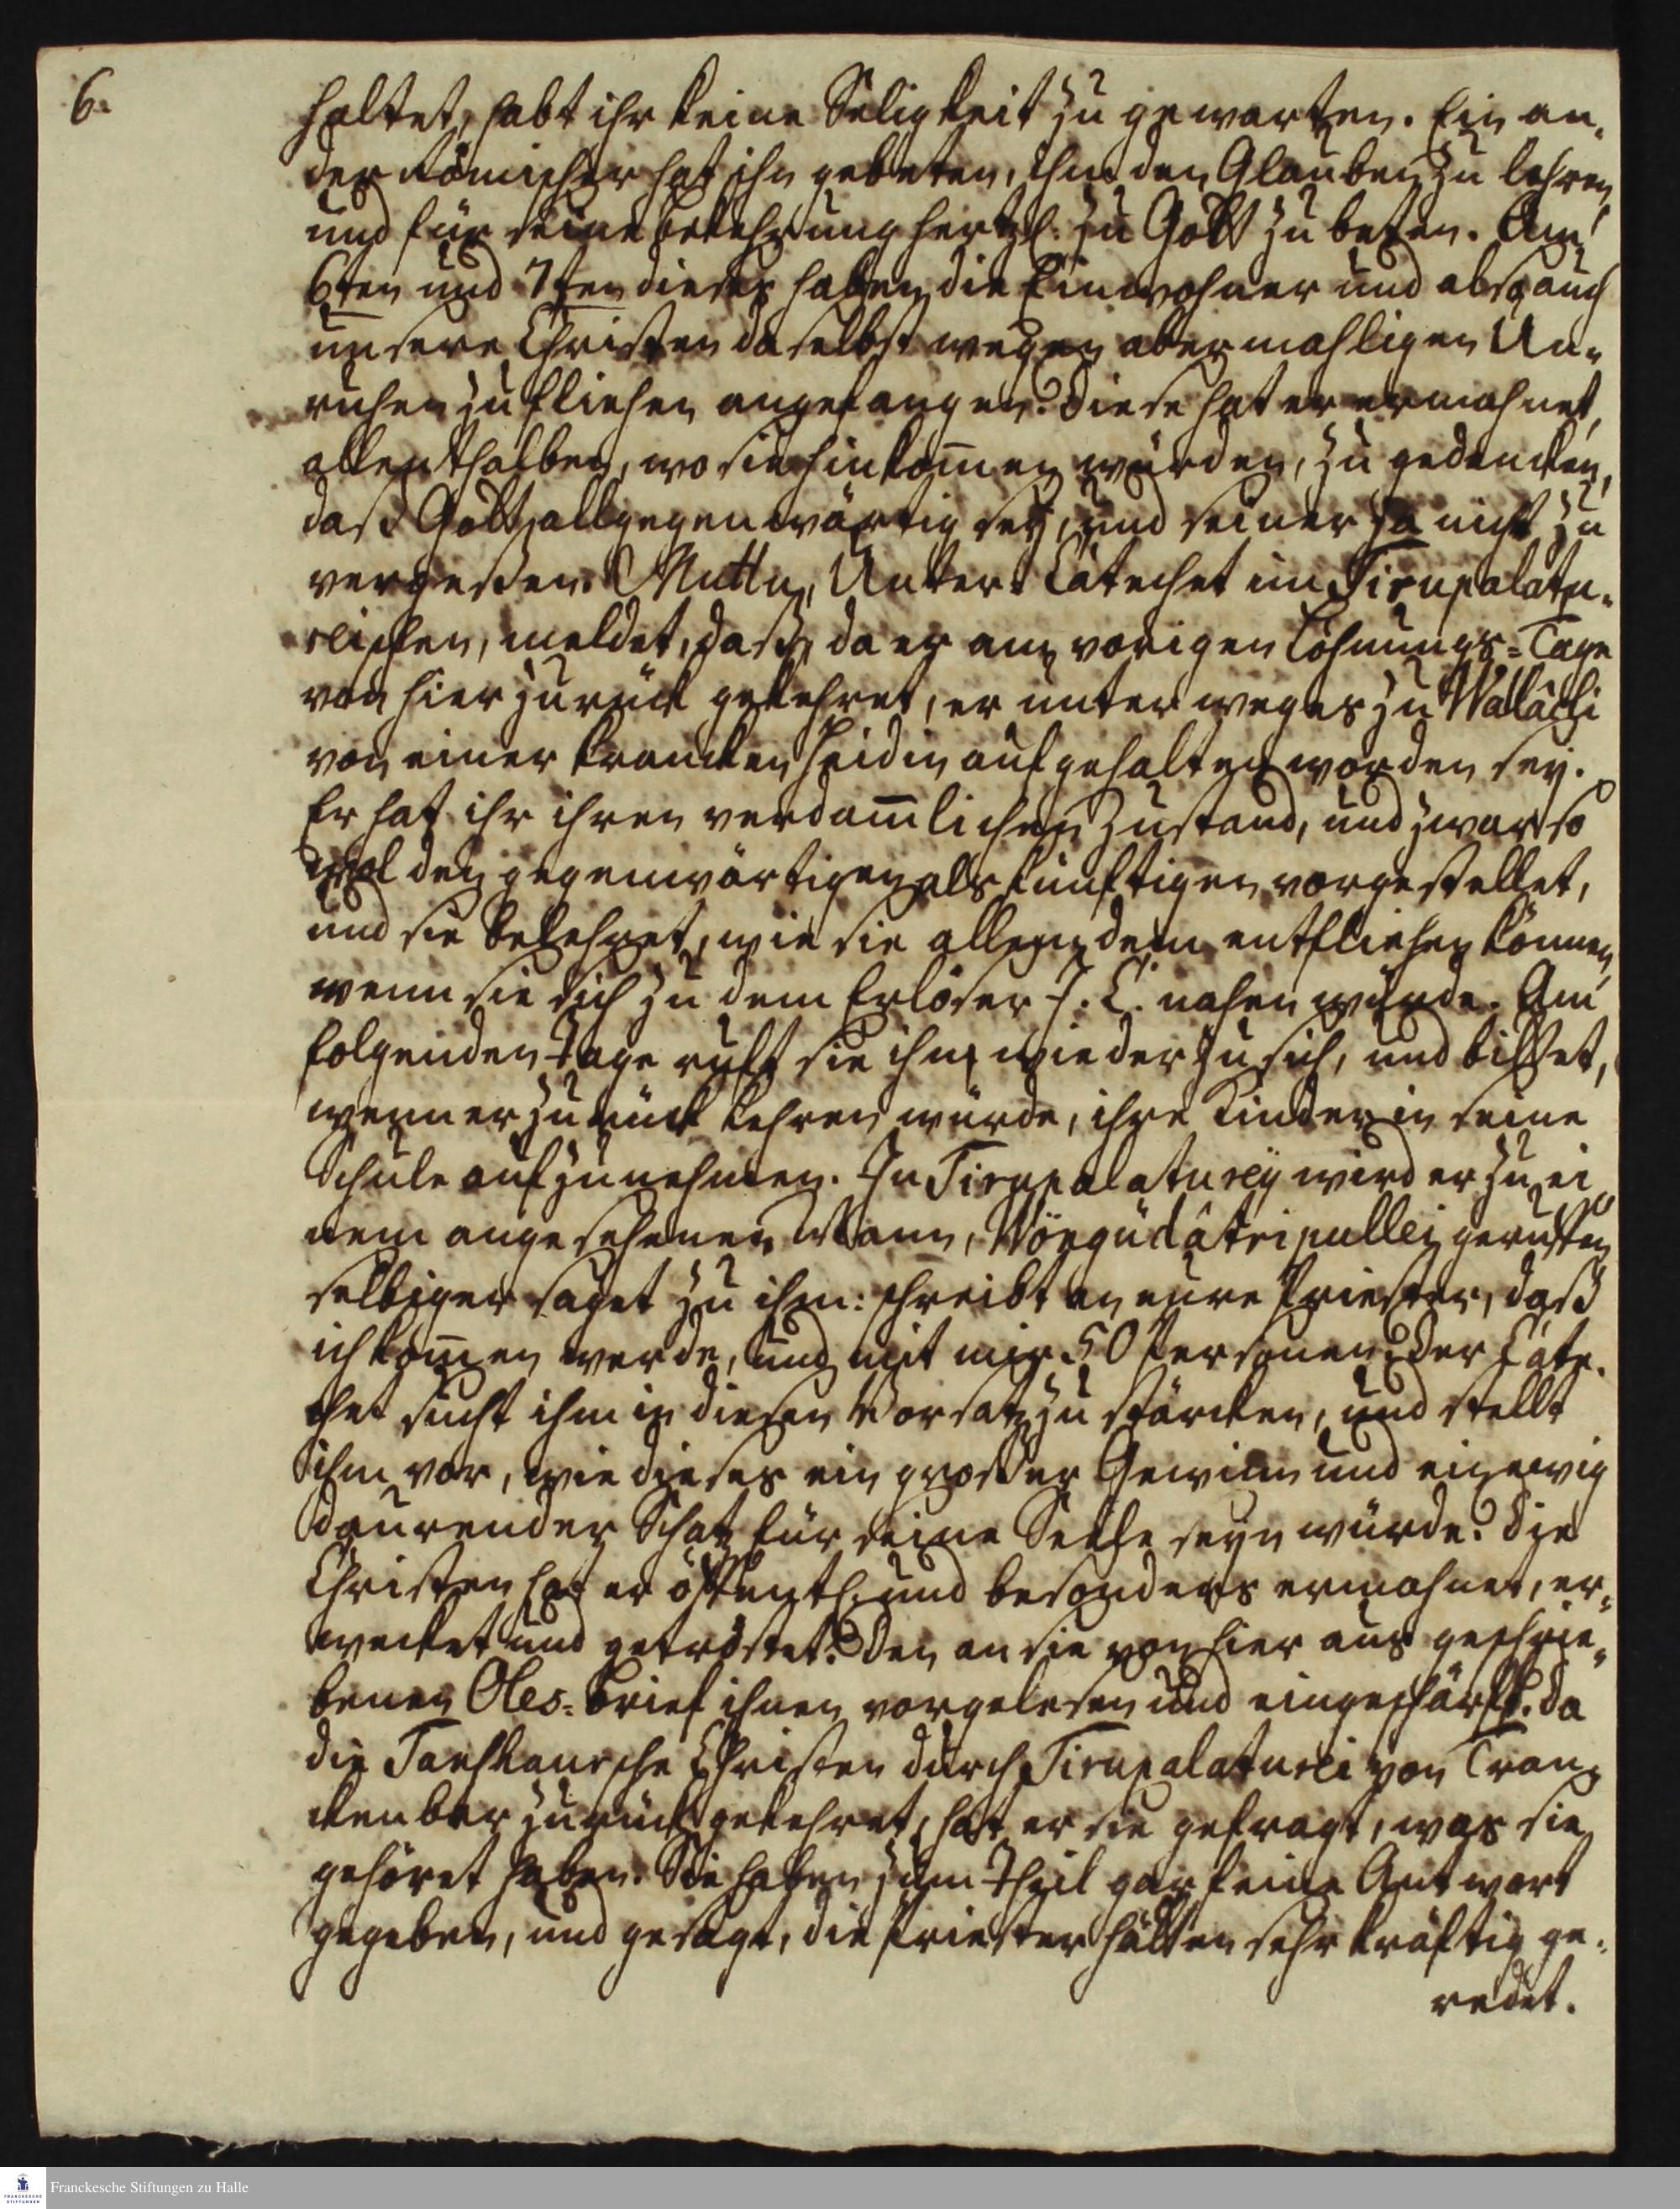 6.
haltet, habt ihr keine Seligkeit zu gewarten. Ein an-
der Römischer hat ihn gebeten, ihm den Glauben zu lehren,
und für seine Bekehrung hertzl. zu Gott zu beten. Am
6ten und 7ten dieses haben die Einwohner und also auch
unsere Christen daselbst wegen abermahligen Un-
ruhen zu fliehen angefangen. Diese hat er ermahnet,
allenthalben, wo sie hinkom̄en würden, zu gedencken,
daß Gott allgegenwärtig sey, und seiner ja nicht zu
vergeßen. Muttu, Unter-Catechet im Tirupalatu-
reischen, meldet, daß, da er am vorigen Löhnungs-Tage
von hier zurück gekehret, er unterweges zu Walâchi
von einer krancken Heidin aufgehalten worden sey.
Er hat ihr ihren verdam̄lichen Zustand, und zwar so
wol den gegenwärtigen als künftigen vorgestellet,
und sie belehret, wie sie allem dem entfliehen könne,
wenn sie sich zu dem Erlöser J. C. nahen würde. Am
folgenden Tage ruft sie ihn wieder zu sich, und bittet,
wenn er zurück kehren würde, ihre Kinder in seine
Schule aufzunehmen. In Tirupalaturey wird er zu ei
nem angesehenen Mann, Wöngüdâtripullei gerufen
selbiger saget zu ihm: schreibt an eure Priester, daß
ich kom̄en werde, und mit mir 50 Personen. Der Cate-
chet sucht ihm in diesen Vorsatz zu stärcken, und stellt
ihm vor, wie dieses ein grosser Gewinn und ein ewig
daurender Schatz für seine Seele seyn würde. Die
Christen hat er öffentl. und besonders ermahnet, er-
wecket und getröstet. Den an sie von hier aus geschrie-
benen Oles-Brief ihnen vorgelesen und eingeschärft. Da
die Tanschaursche Christen durch Tirupalaturei von Tran-
ckenbar zurück gekehret, hat er sie gefragt, was sie
gehöret haben. Sie haben zum Theil gar feine Antwort
gegeben, und gesagt, die Priester hätten sehr kräftig ge-
redet.
Franckesche Stiftungen zu Halle
FRANCKESCHE
STIFTUNGEN